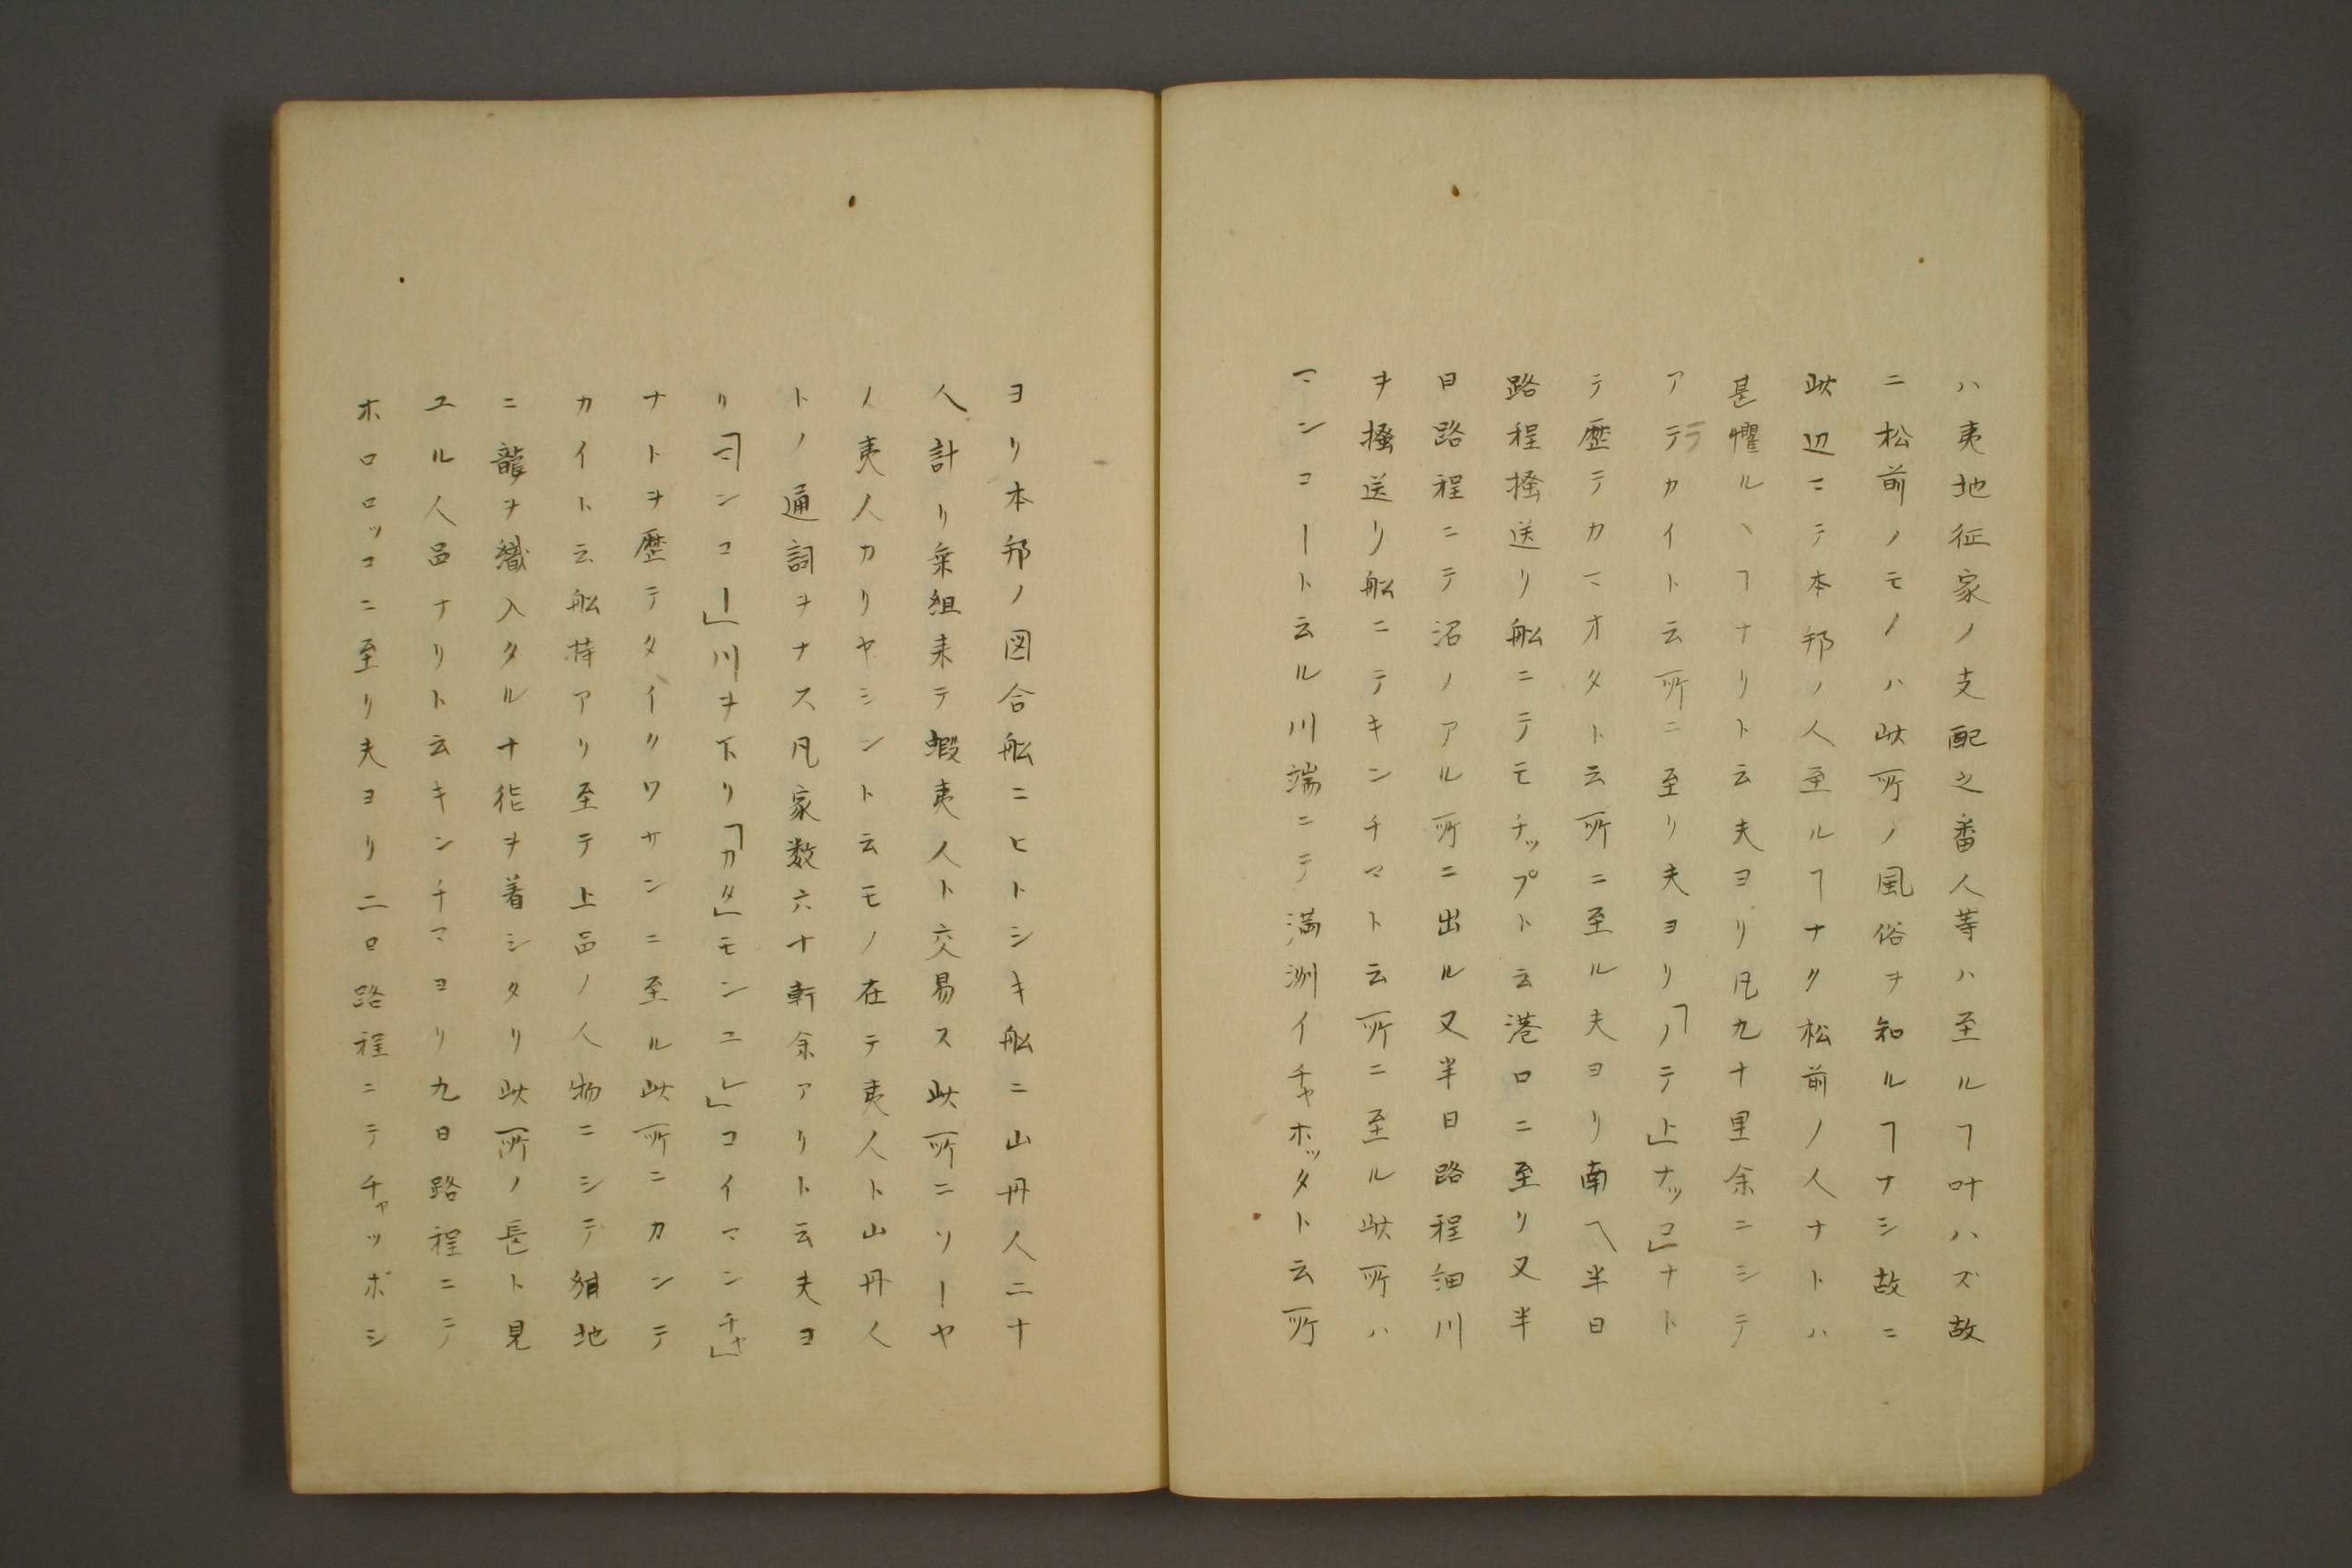 ハ夷地征家ノ支配之番人等ハ至ルヿ叶ハズ故
ニ松前ノモノハ此所ノ風俗ヲ知ルヿナシ故ニ
此辺ニテ本邦ノ人至ルヿナク松前ノ人ナトハ
甚懼ルヽヿナリト云夫ヨリ凡九十里余ニシテ
アテラカイト云所ニ至リ夫ヨリ「ノテト」ナッコ」ナト
テ歴テカマオタト云所ニ至ル夫ヨリ南ヘ半日
路程搔送リ船ニテモチップト云港口ニ至リ又半
日路程ニテ沼ノアル所ニ出ル又半日路程細川
ヲ搔送リ船ニテキンチマト云所ニ至ル此所ハ
マンコートト云ル川端ニテ満洲イチャホッタト云所
ヨリ本邦ノ図合船ニヒトシキ船ニ山丹人二十
人計リ乗組来テ蝦夷人ト交易ス此所ニソーヤ
ノ夷人カリヤシント云モノ在テ夷人ト山丹人
トノ通詞ヲナス凡家数六十軒余アリト云夫ヨ
リ「マンコー」川ヲ下リ「カタ」モンユレ」コイマンチャ」
ナトヲ歴テタイクワサンニ至ル此所ニカンテ
カイト云船持アリ至テ上品ノ人物ニシテ絹地
ニ龍ヲ織入タル十徳ヲ着シタリ此所ノ長ト見
ユル人品ナリト云キンチマヨリ九日路程ニテ
ホロロッコニ至リ夫ヨリ二日路程ニテチャッポシ